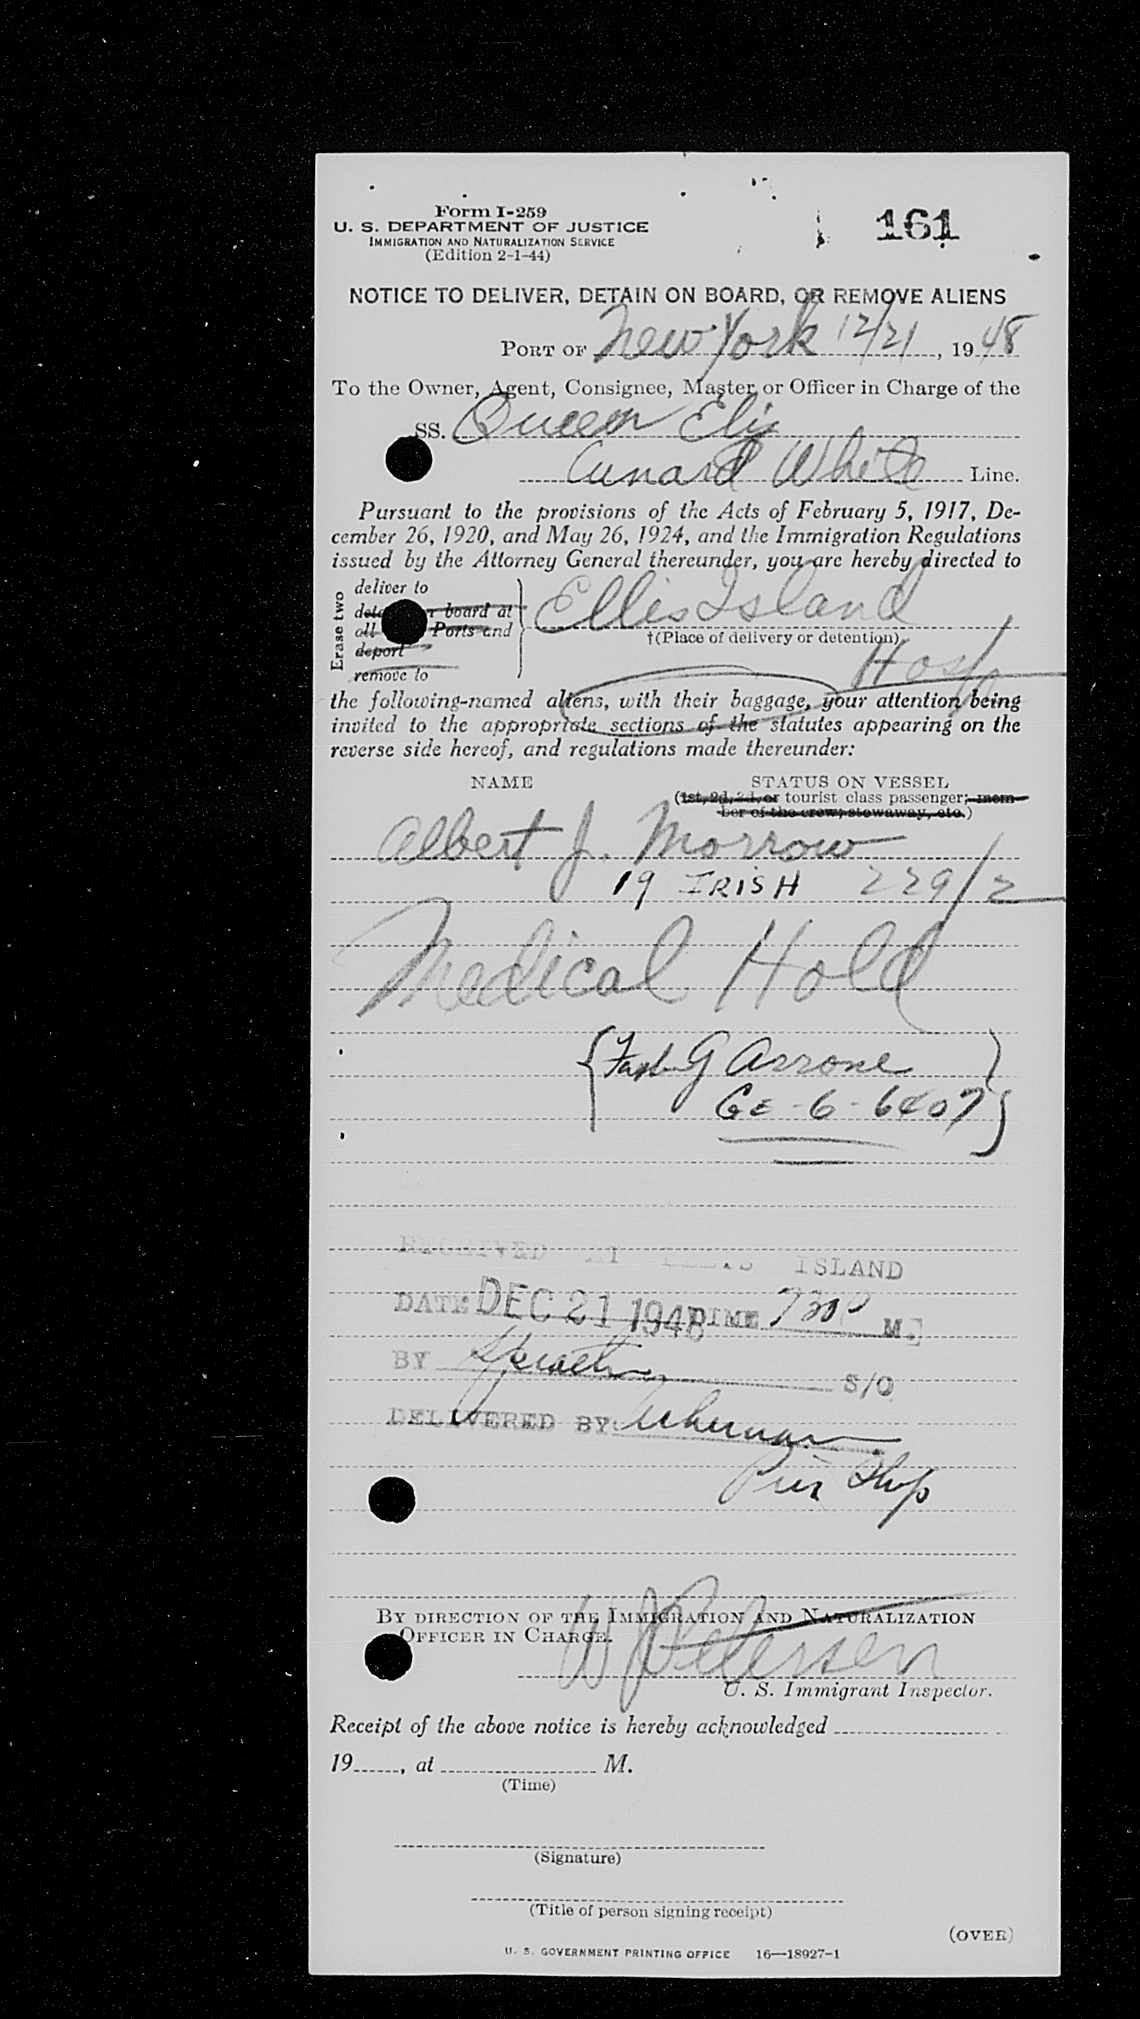 Form I-259
U. S. DEPARTMENT OF JUSTICE
IMMIGRATION AND NATURALIZATION SERVICE
(Edition 2-1-44)
161
NOTICE TO DELIVER, DETAIN ON BOARD, OR REMOVE ALIENS
PORT OF New York 12/21, 1948
To the Owner, Agent, Consignee, Master or Officer in Charge of the
SS. Queen Eliz
Cunard White Line.
Pursuant to the provisions of the Acts of February 5, 1917, De-
cember 26, 1920, and May 26, 1924, and the Immigration Regulations
issued by the Attorney General thereunder, you are hereby directed to
Erase two
deliver to
board at
all Ports and
deport
remove to
Ellis Island
†(Place of delivery or detention)
Hosp
the following-named aliens, with their baggage, your attention being
invited to the appropriate sections of the statutes appearing on the
reverse side hereof, and regulations made thereunder:
NAME STATUS ON VESSEL
(1st, 2d, 3d, or tourist class passenger; mem-
ber of the crew; stowaway, etc.)
Albert J. Morrow
19 IRISH 229/2
Medical Hold
G Arrone
GE-6-6407
RECEIVED AT ELLIS ISLAND
DATE DEC 21 1948 TIME 730 P M.
BY S/O
DELIVERED BY
Pier
BY DIRECTION OF THE IMMIGRATION AND NATURALIZATION
OFFICER IN CHARGE.
W J Petersen
U. S. Immigrant Inspector.
Receipt of the above notice is hereby acknowledged
19, at M.
(Time)
(Signature)
(Title of person signing receipt)
(OVER)
U. S. GOVERNMENT PRINTING OFFICE 16—18927-1